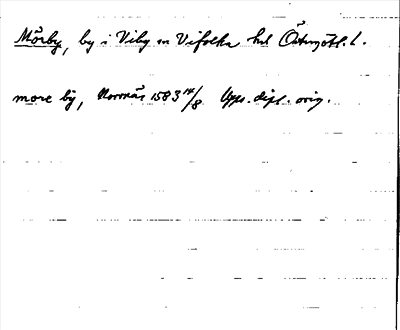 Mörby, by i Viby sn Vifolka hd Östergötl. l.
more bÿ, Norrnäs 1583 14/8 Upps. dipl. orig.